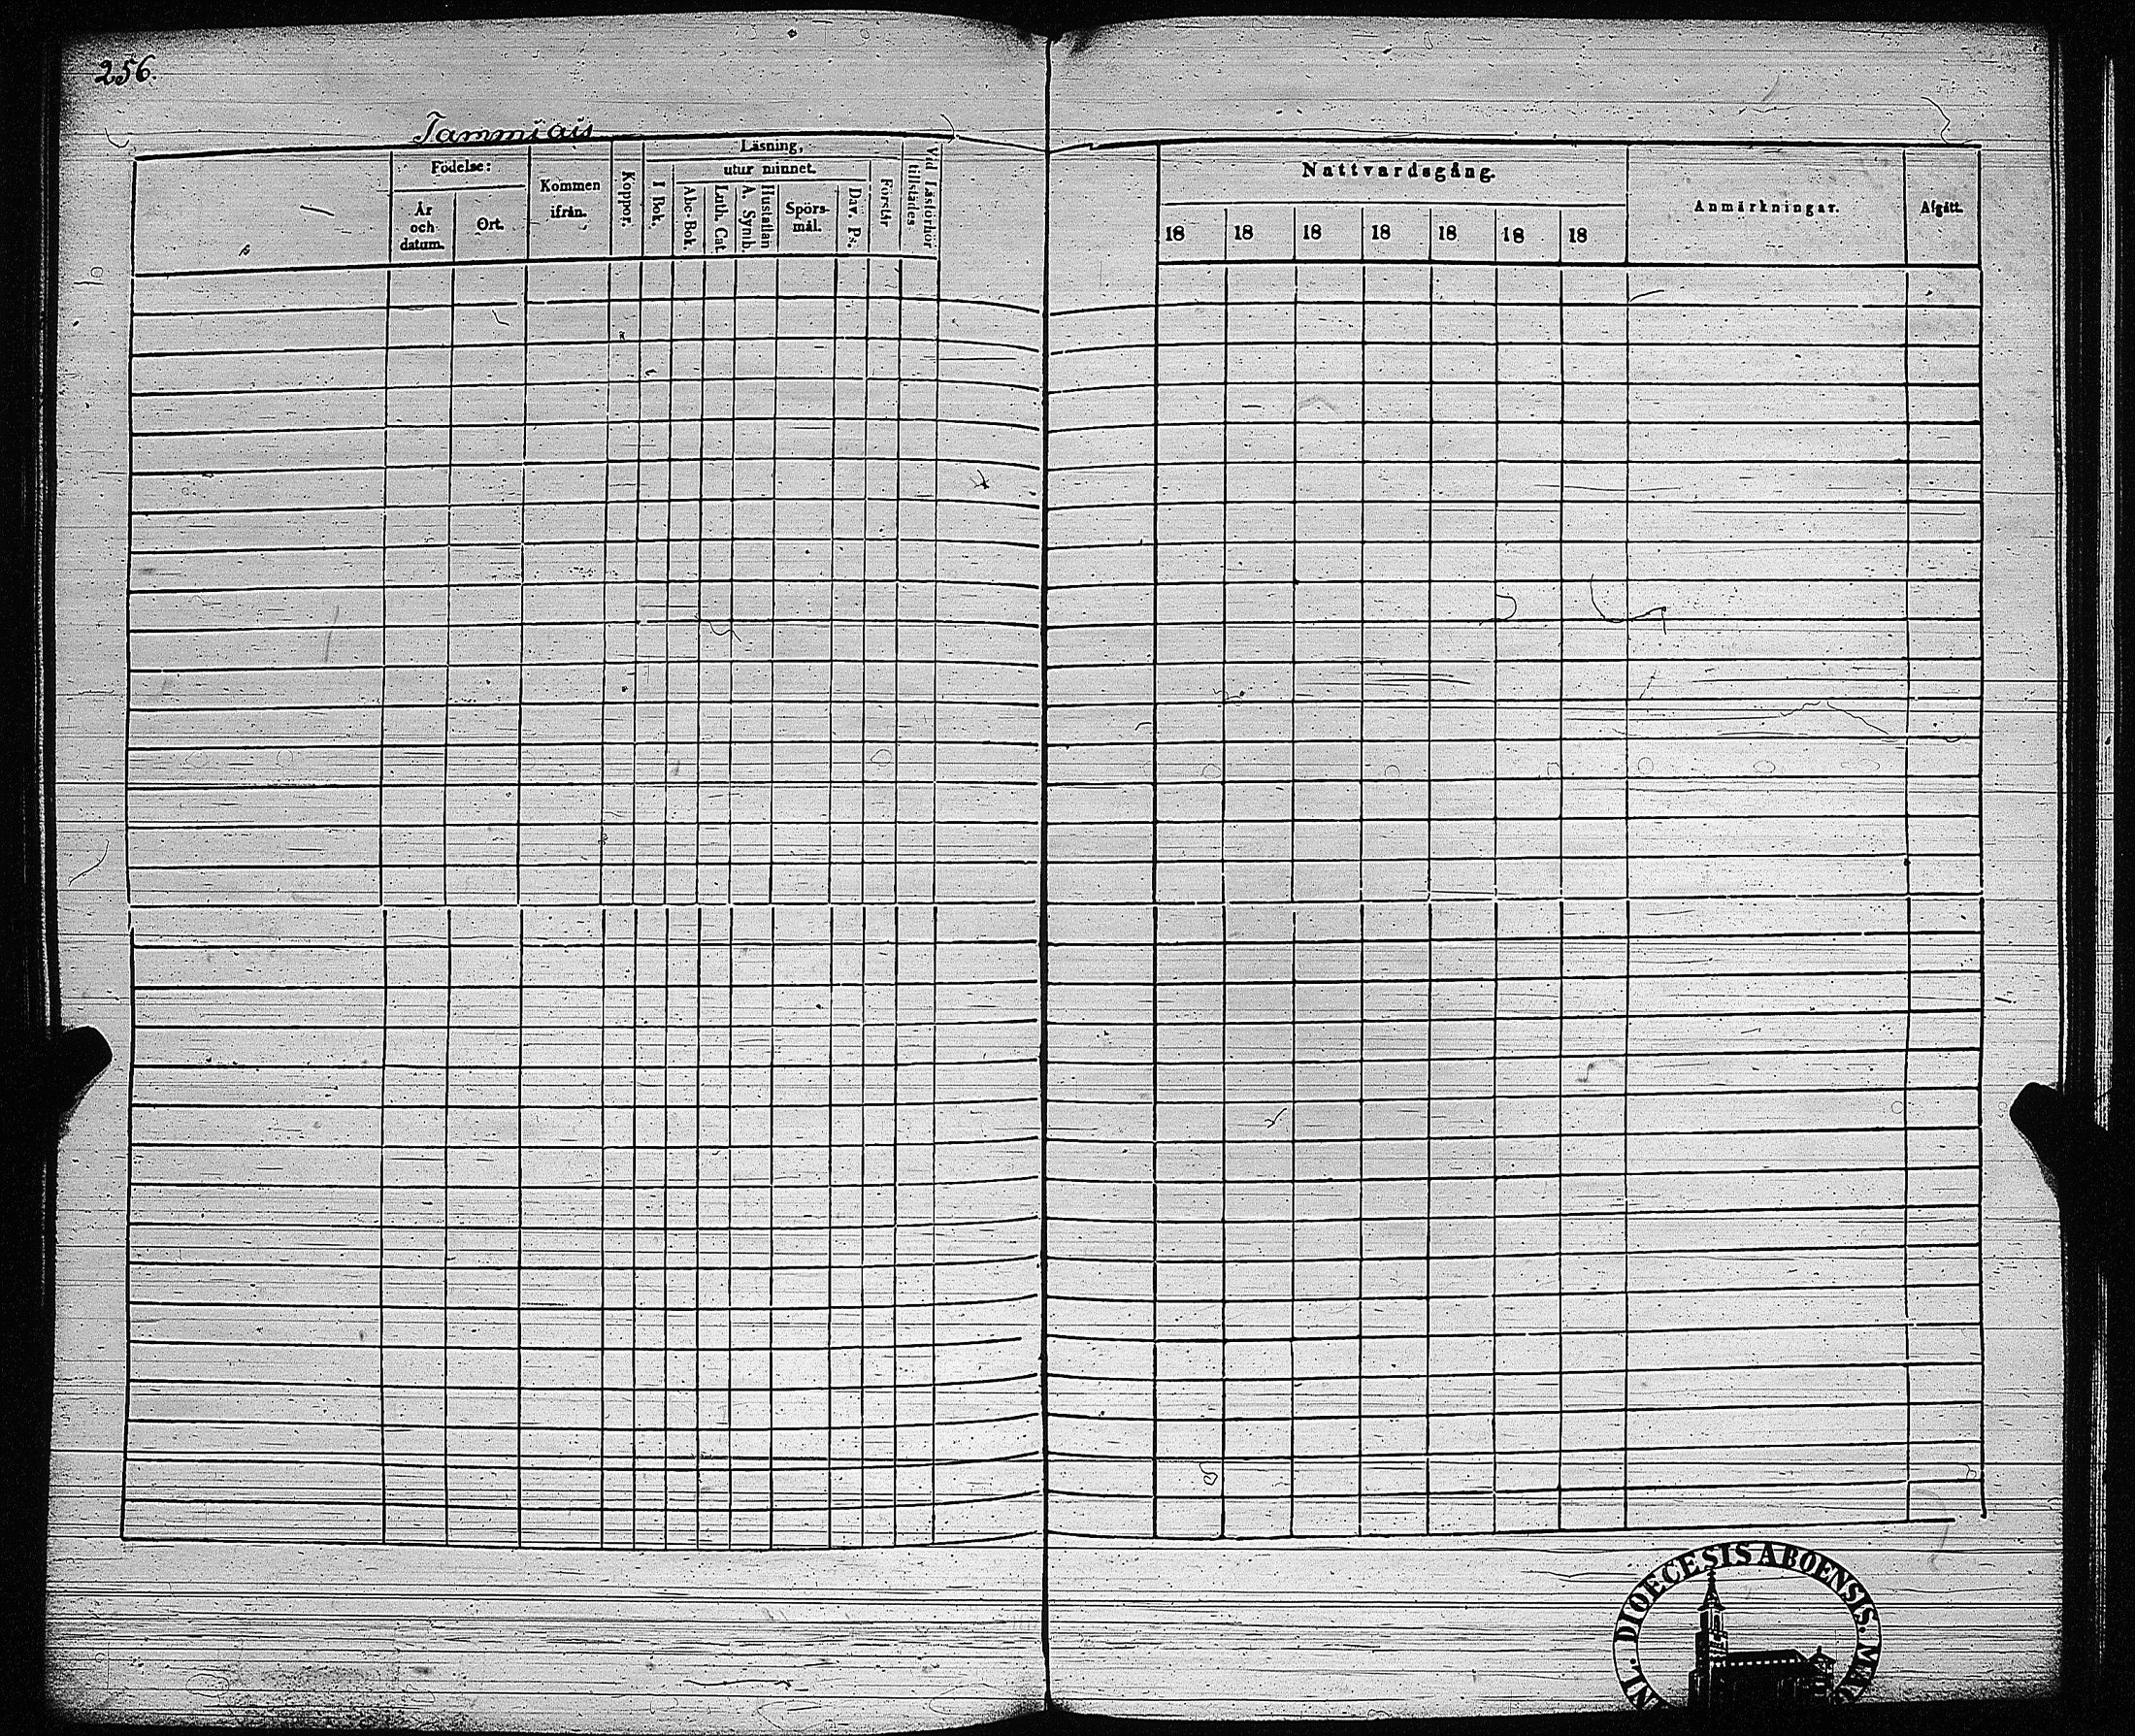 256.
Tammiais
Födelse:
År
och
datum.
Ort.
Kommen
ifrån.
Koppor.
Läsning,
utur minnet.
I Bok.
Abc-Bok.
Luth. Cat.
A. Symb.
Hustaflan
Spörs-
mål.
Dav. Ps.
Förstår
Vid Läsförhör
tillstädes
Nattvardsgång.
18 18 18 18 18 18 18
Anmärkningar.
Afgått.
DIOECESIS ABOENSIS.